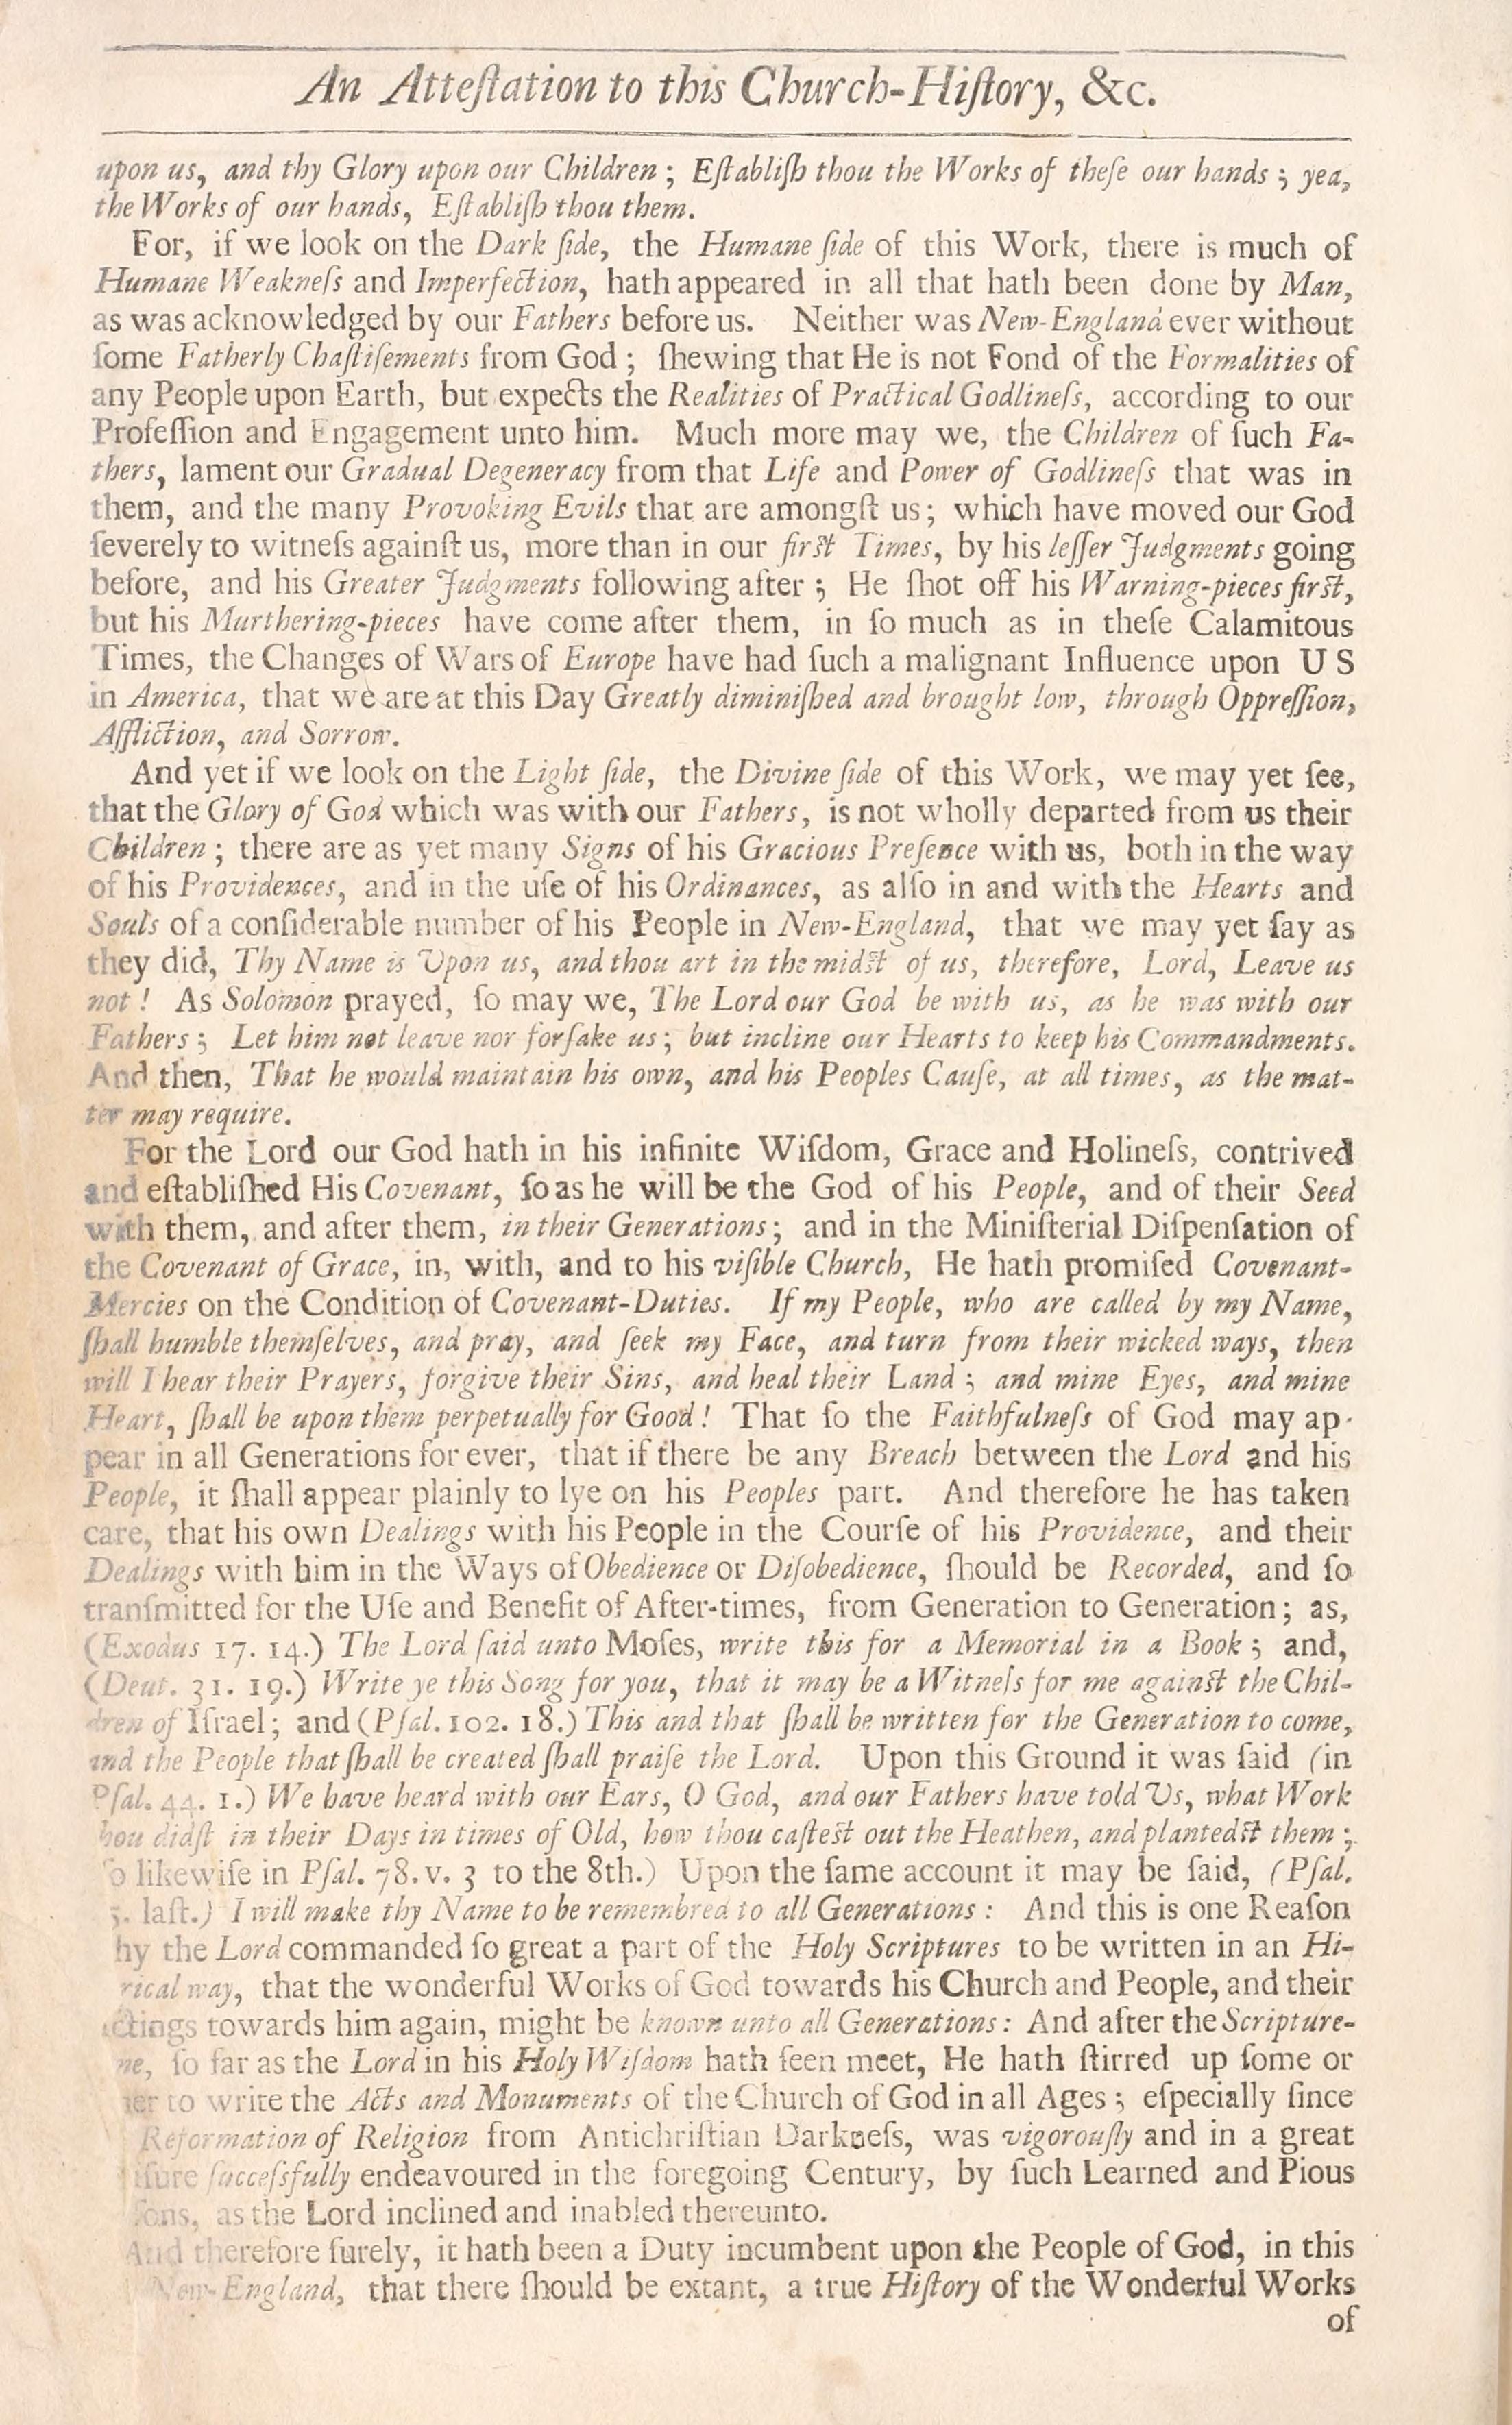 An Atteſtation to this Church-Hiſtory, &c.
upon us, and thy Glory upon our Children; Eſtabliſh thou the Works of theſe our hands; yea,
the Works of our hands, Eſtabliſh thou them.
For, if we look on the Dark ſide, the Humane ſide of this Work, there is much of
Humane Weakneſs and Imperfection, hath appeared in all that hath been done by Man,
as was acknowledged by our Fathers before us. Neither was New-England ever without
ſome Fatherly Chaſtiſements from God; ſhewing that He is not Fond of the Formalities of
any People upon Earth, but expects the Realities of Practical Godlineſs, according to our
Profeſſion and Engagement unto him. Much more may we, the Children of ſuch Fa-
thers, lament our Gradual Degeneracy from that Life and Power of Godlineſs that was in
them, and the many Provoking Evils that are amongſt us; which have moved our God
ſeverely to witneſs againſt us, more than in our firſt Times, by his leſſer Judgments going
before, and his Greater Judgments following after; He ſhot off his Warning-pieces firſt,
but his Murthering-pieces have come after them, in ſo much as in theſe Calamitous
Times, the Changes of Wars of Europe have had ſuch a malignant Influence upon US
in America, that we are at this Day Greatly diminiſhed and brought low, through Oppreſſion,
Affliction, and Sorrow.
And yet if we look on the Light ſide, the Divine ſide of this Work, we may yet ſee,
that the Glory of God which was with our Fathers, is not wholly departed from us their
Children; there are as yet many Signs of his Gracious Preſence with us, both in the way
of his Providences, and in the uſe of his Ordinances, as alſo in and with the Hearts and
Souls of a conſiderable number of his People in New-England, that we may yet ſay as
they did, Thy Name is Upon us, and thou art in the midſt of us, therefore, Lord, Leave us
not! As Solomon prayed, ſo may we, The Lord our God be with us, as he was with our
Fathers; Let him not leave nor forſake us; but incline our Hearts to keep his Commandments.
And then, That he would maintain his own, and his Peoples Cauſe, at all times, as the mat-
ter may require.
For the Lord our God hath in his infinite Wiſdom, Grace and Holineſs, contrived
and eſtabliſhed His Covenant, ſo as he will be the God of his People, and of their Seed
with them, and after them, in their Generations; and in the Miniſterial Diſpenſation of
the Covenant of Grace, in, with, and to his viſible Church, He hath promiſed Covenant-
Mercies on the Condition of Covenant-Duties. If my People, who are called by my Name,
ſhall humble themſelves, and pray, and ſeek my Face, and turn from their wicked ways, then
will I hear their Prayers, forgive their Sins, and heal their Land; and mine Eyes, and mine
Heart, ſhall be upon them perpetually for Good! That ſo the Faithfulneſs of God may ap-
pear in all Generations for ever, that if there be any Breach between the Lord and his
People, it ſhall appear plainly to lye on his Peoples part. And therefore he has taken
care, that his own Dealings with his People in the Courſe of his Providence, and their
Dealings with him in the Ways of Obedience or Diſobedience, ſhould be Recorded, and ſo
tranſmitted for the Uſe and Benefit of After-times, from Generation to Generation; as,
(Exodus 17. 14.) The Lord ſaid unto Moſes, write this for a Memorial in a Book; and,
(Deut. 31. 19.) Write ye this Song for you, that it may be a Witneſs for me againſt the Chil-
dren of Iſrael; and (Pſal. 102. 18.) This and that ſhall be written for the Generation to come,
and the People that ſhall be created ſhall praiſe the Lord. Upon this Ground it was ſaid (in
Pſal. 44. 1.) We have heard with our Ears, O God, and our Fathers have told Us, what Work
hou didſt in their Days in times of Old, how thou caſteſt out the Heathen, and plantedſt them;
o likewiſe in Pſal. 78. v. 3 to the 8th.) Upon the ſame account it may be ſaid, (Pſal.
5. laſt.) I will make thy Name to be remembred to all Generations: And this is one Reaſon
hy the Lord commanded ſo great a part of the Holy Scriptures to be written in an Hi-
rical way, that the wonderful Works of God towards his Church and People, and their
ctings towards him again, might be known unto all Generations: And after the Scripture-
ne, ſo far as the Lord in his Holy Wiſdom hath ſeen meet, He hath ſtirred up ſome or
her to write the Acts and Monuments of the Church of God in all Ages; eſpecially ſince
Reformation of Religion from Antichriſtian Darkneſs, was vigorouſly and in a great
ſure ſucceſsfully endeavoured in the foregoing Century, by ſuch Learned and Pious
ſons, as the Lord inclined and inabled thereunto.
And therefore ſurely, it hath been a Duty incumbent upon the People of God, in this
New-England, that there ſhould be extant, a true Hiſtory of the Wonderful Works
of